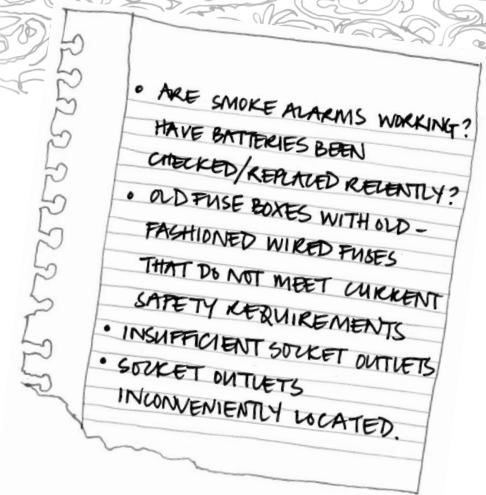 • ARE SMOKE ALARMS WORKING?
HAVE BATTERIES BEEN
CHECKED/REPLACED RECENTLY?
• OLD FUSE BOXES WITH OLD-
FASHIONED WIRED FUSES
THAT DO NOT MEET CURRENT
SAFETY REQUIREMENTS
• INSUFFICIENT SOCKET OUTLETS
• SOCKET OUTLETS
INCONVENIENTLY LOCATED.